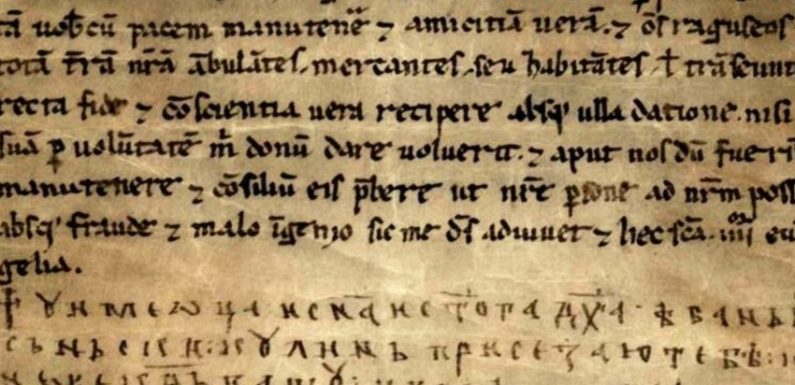 tā uob̄cū pacem manutene᷑ ⁊ amicitiā uerā. ⁊ o̅s raguseos
totā t̄rā nr̄ā ābulātes, mercantes, seu habitātes, ł trāseunt
recta fide ⁊ cōscientia uera recipere absq; ulla datione. nisi
suā ꝑ uolūtatē m̄ donū dare uoluerit. ⁊ aput nos dū fueri
manutenere ⁊ cōsiliū eis p̄bere ut nr̄e ꝑsone ad nr̄m poss
absq; fraude ⁊ malo īgenio sic me ds̄ adiuuet ⁊ hec sc̄a. iiii eu
gelia.
† ꙋ име ѡца и сн҃а и ст҃ога дх҃а · ѣ бань б
сьньски: кꙋлинь присезаю тебѣ: